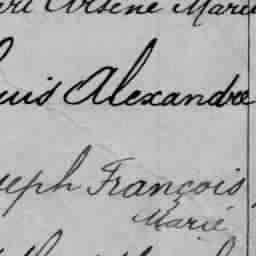 Arsène Marie
Louis Alexandre
Joseph François
Marie